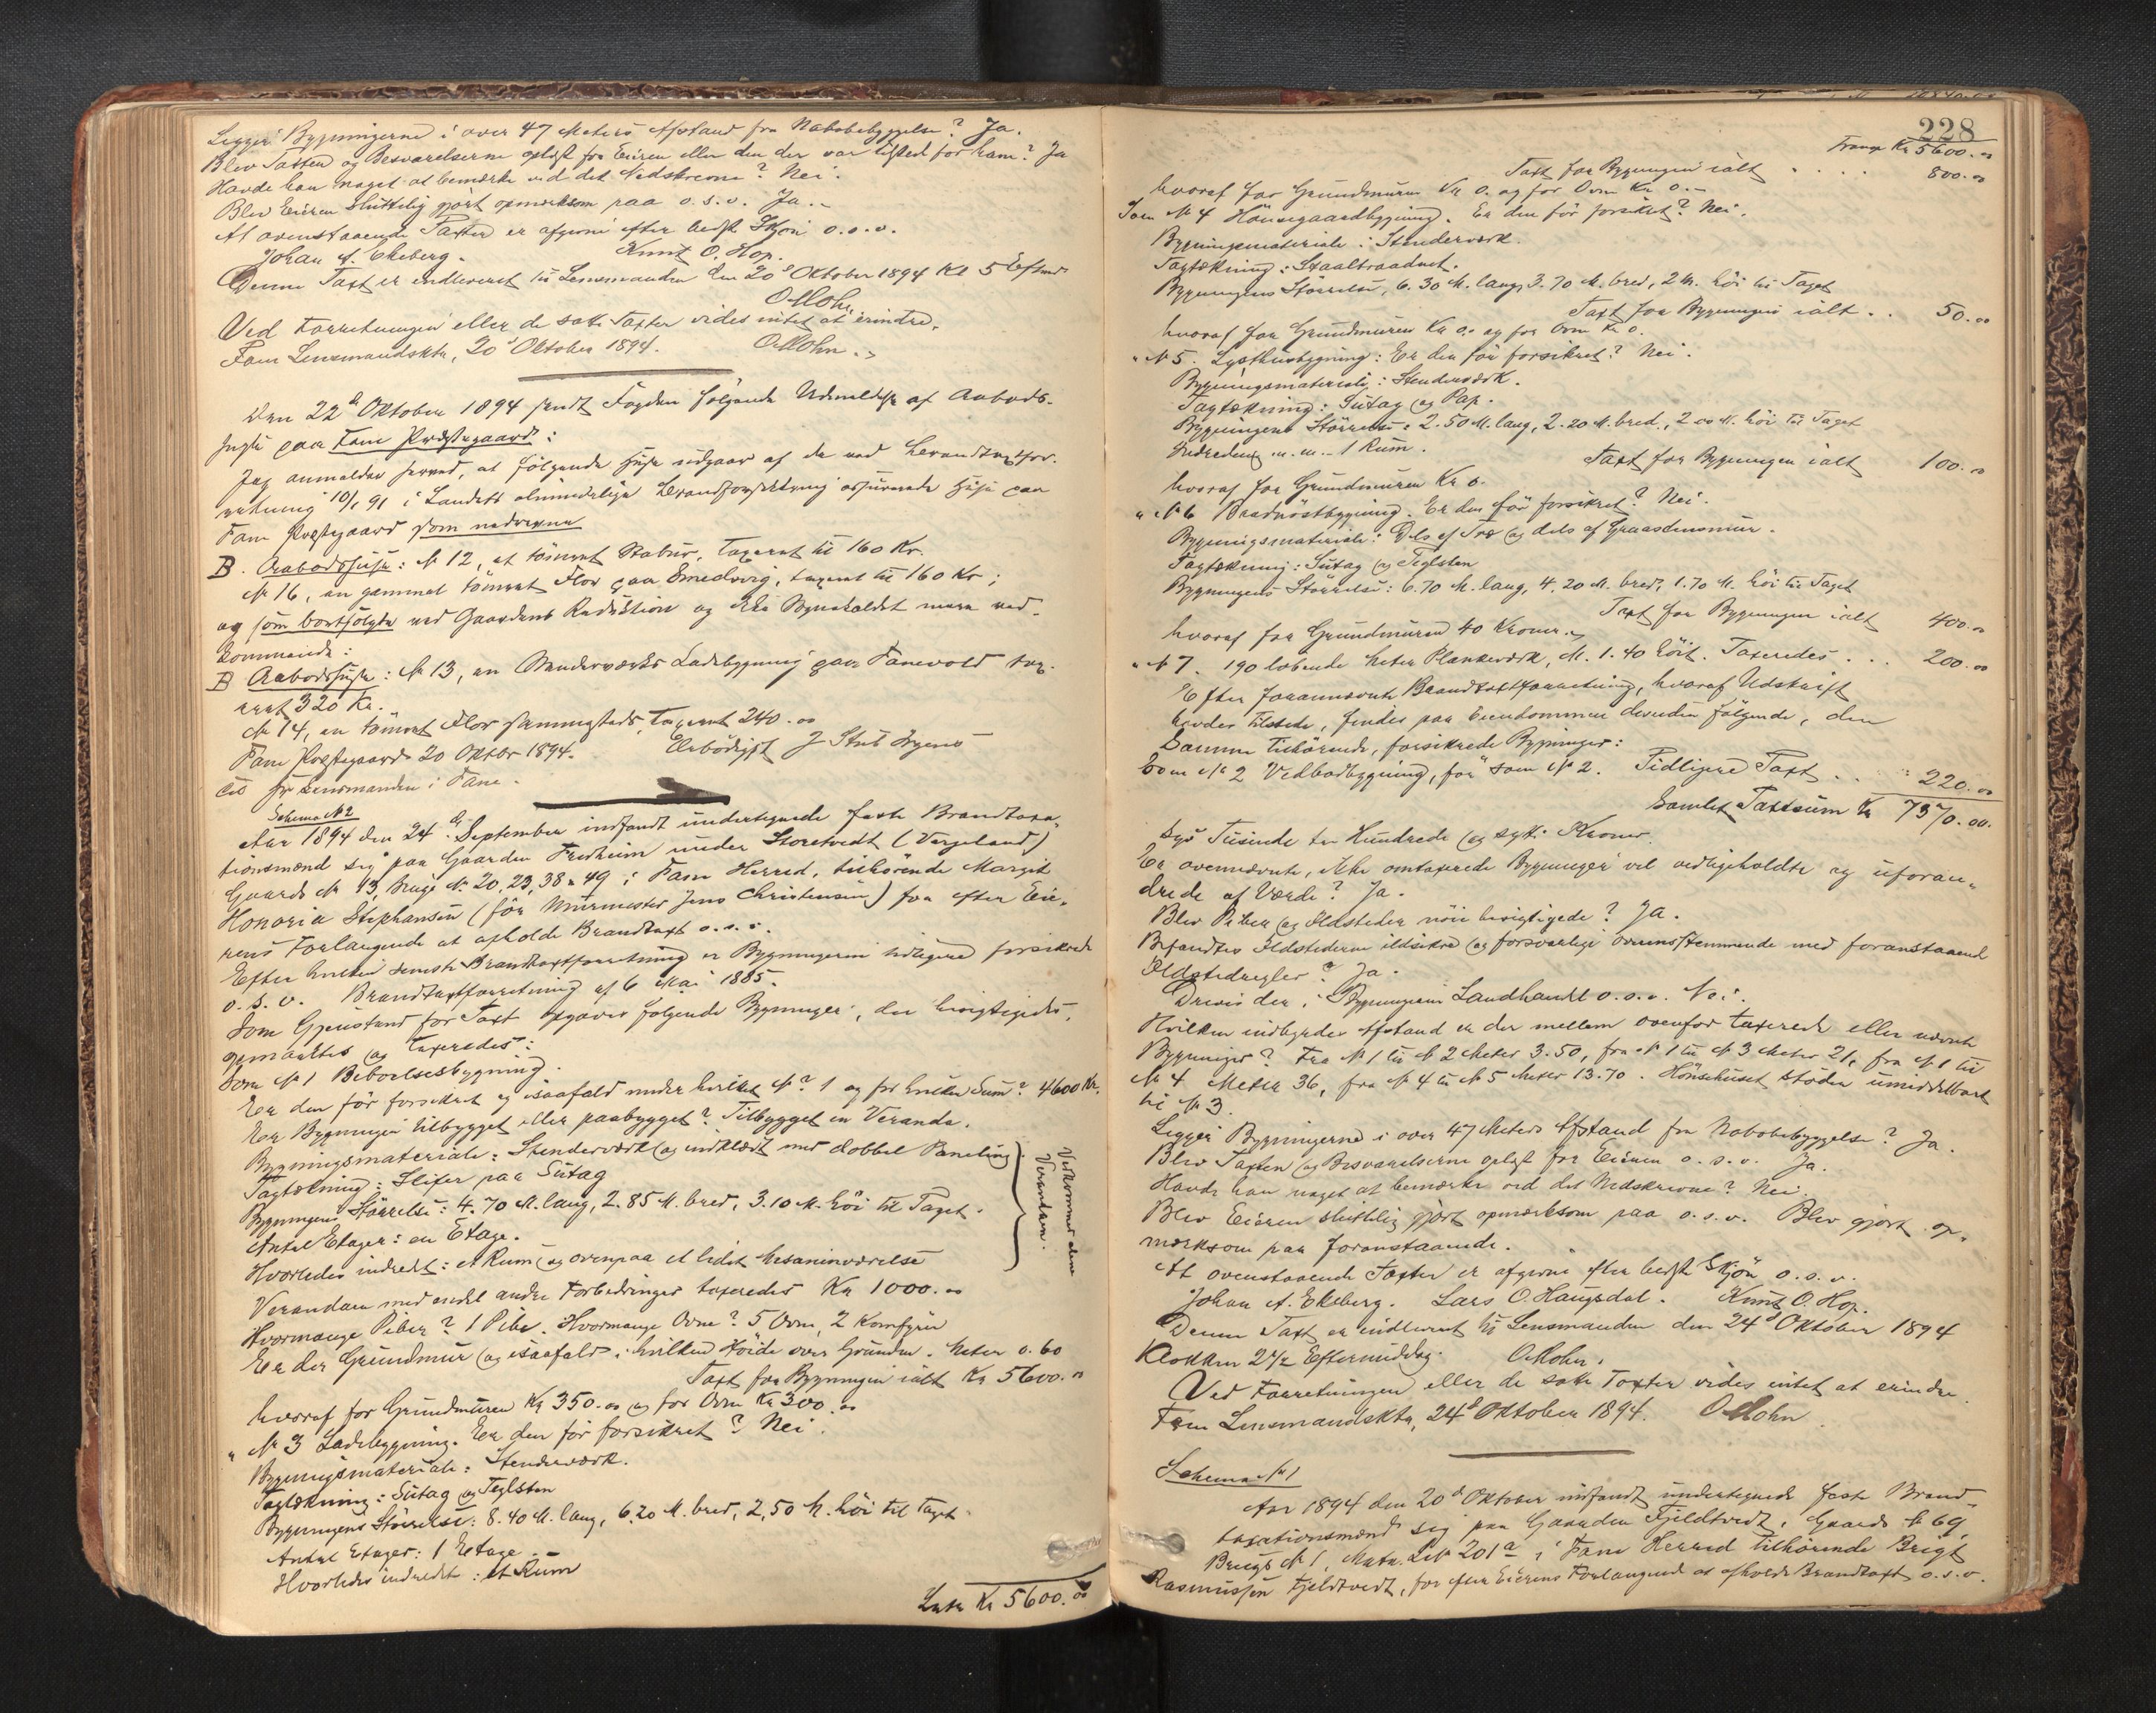 Ligger Bygningerne i over 47 Meters Afstand fra Nabobebyggelse? Ja.
Blev Taxten og Besvarelserne oplæst for Eieren eller den der var tilsted for ham? Ja
Havde han noget at bemærke ved det Nedskrevne? Nei.
Blev Eieren sluttelig gjort opmærksom paa o.s.v. Ja.
At ovenstaaende Taxter er afgivne efter bedste Skjøn o.s.v.
Johan A. Ekeberg. Knut O. Hop.
Denne Taxt er indleveret til Lensmanden den 20d Oktober 1894 Kl 5 Efterm
O Mohn
Ved Forretningen eller de satte Taxter vides intet at erindre.
Fane Lensmandsktr, 20d Oktober 1894. O Mohn.
Den 22d Oktober 1894 sendt Fogden følgende Udmeldelse af Aabods-
huse paa Fane Præstegaard:
Jeg anmelder herved, at følgende Huse udgaar af de ved Brandtaxtfor-
retning 10/1 91 i Landets almindelige Brandforsikring assurerede Huse paa
Fane Præstegaard som nedrevne
B. Aabodshuse: N 12, et tømret Stabur, taxeret til 160 Kr.
N 16, en gammel tømret Flor paa Smedvig, taxeret til 160 Kr;
og som bortsolgte ved Gaardens Reduktion og ikke Beneficiet mere ved-
kommende:
B Aabodshuse: N 13, en Stenderværks Ladebygning paa Fanevold tax-
eret 320 Kr.
N 14, en tømret Flor sammesteds, taxeret 240.00
Fane Præstegaard 20 Oktbr 1894. Ærbødigst J Stub
Til Hr Lensmanden i Fane.
Schema N 2
Aar 1894 den 24d September indfandt undertegnede faste Brandtaxa-
tionsmænd sig paa Gaarden Fredheim under Storetvedt (Vargeland)
Gaards N 13, Brugs N. 20, 23, 38 & 49 i Fane Herred, tilhørende Margit
Honoria Stephansen (før Murmester Jens Christensen) for efter Eie-
rens Forlangende at afholde Brandtaxt o.s.v.
Efter hvilken seneste Brandtaxtforretning er Bygningerne tidligere forsikrede
o.s.v. Brandtaxtforretning af 6 Mai 1885.
Som Gjenstand for Taxt opgaves følgende Bygninger, der besigtigedes,
opmaaltes og taxeredes:
Som N 1 Beboelsesbygning.
Er den før forsikret og isaafald under hvilket N? 1 og for hvilken Sum? 4600 Kr.
Er Bygningen tilbygget eller paabygget? Tilbygget en Veranda.
Bygningsmateriale: Stenderværk og indklædt med dobbel Paneling
Tagtækning: Skifer paa Sutag
Bygningens Størrelse: 4.70 M. lang, 2.85 M. bred, 3.10 M. høi til Taget.
Antal Etager: en Etage.
Hvorledes indredet: et Rum og ovenpaa et lidet Mesaninværelse
Vedkommer alene
Verandaen.
Verandaen med endel andre Forbedringer taxeredes Kr 1000.00
Hvormange Piber? 1 Pibe. Hvormange Ovne? 5 Ovne, 2 Komfyrer
Er der Grundmur og isaafald i hvilken Høide over Grunden. Meter 0.60
Taxt for Bygningen ialt Kr 5600.00
hvoraf for Grundmuren Kr 350.00 og for Ovne Kr 300.00
" N 3 Ladebygning. Er den før forsikret? Nei.
Bygningsmateriale: Stenderværk.
Tagtækning: Sutag og Teglsten
Bygningens Størrelse: 8.40 M. lang, 6.20 M. bred, 2.50 M. høi til Taget
Antal Etager: 1 Etage.
Hvorledes indredet: et Rum
Latr Kr 5600.00
228
Transp Kr 5600.00
Taxt for Bygningen ialt . . . . 800.00
hvoraf for Grundmuren Kr 0. og for Ovne Kr 0.
Som N 4 Hønsegaardbygning. Er den før forsikret? Nei.
Bygningsmateriale: Stenderværk.
Tagtækning: Staaltraadnet.
Bygningens Størrelse, 6.30 M. lang, 3.70 M. bred, 2 M. høi til Taget
Taxt for Bygningen ialt . . 50.00
hvoraf for Grundmuren Kr 0. og for Ovne Kr 0.
" N 5. Lysthusbygning: Er den før forsikret? Nei.
Bygningsmateriale: Stenderværk.
Tagtækning: Sutag og Pap.
Bygningens Størrelse: 2.50 M. lang, 2.20 M. bred, 2.00 M. høi til Taget
Indredning m.m. 1 Rum.
Taxt for Bygningen ialt 100.00
hvoraf for Grundmuren Kr 0.
" N 6 Baadnøstbygning. Er den før forsikret? Nei.
Bygningsmateriale: Dels af Træ og dels af Graastensmur.
Tagtækning: Sutag og Teglsten
Bygningens Størrelse: 6.70 M. lang, 4.20 M. bred, 1.70 M. høi til Taget
Taxt for Bygningen ialt 400.00
hvoraf for Grundmuren 40 Kroner.
" N 7. 190 løbende Meter Plankeværk, M. 1.40 høit. Taxeredes . . . 200.00
Efter forannævnte Brandtaxtforretning, hvoraf Udskrift
havdes tilstede, findes paa Eiendommen desuden følgende, den
Samme tilhørende, forsikrede Bygninger:
Som N 2 Vedbodbygning, før som N 2. Tidligere Taxt . . " 220.00
Samlet Taxtsum Kr 7370.00.
Syv Tusinde tre Hundrede og sytti Kroner.
Er ovennævnte, ikke omtaxerede Bygninger vel vedligeholdte og uforan-
drede af Værdi? Ja.
Blev Piber og Ildsteder nøie besigtigede? Ja.
Befandtes Ildstederne ildsikre og forsvarlige overensstemmende med foranstaaende
Ildstedregler? Ja.
Drives der i Bygningerne Landhandel o.s.v. Nei.
Hvilken indbyrdes Afstand er der mellem ovenfor taxerede eller nævnte
Bygninger? Fra N 1 til N 2 Meter 3.50, fra N 1 til N 3 Meter 21, fra N 1 til
N 4 Meter 36, fra N 4 til N 5 Meter 13.70. Hønsehuset støder umiddelbart
til N 3.
Ligger Bygningerne i over 47 Meters Afstand fra Nabobebyggelse? Ja.
Blev Taxten og Besvarelserne oplæst for Eieren o.s.v. Ja.
Havde han noget at bemærke ved det Nedskrevne? Nei.
Blev Eieren sluttelig gjort opmærksom paa o.s.v. Blev gjort op-
mærksom paa foranstaaende.
At ovenstaaende Taxter er afgivne efter bedste Skjøn o.s.v.
Johan A. Ekeberg. Lars O. Haugsdal. Knut O. Hop.
Denne Taxt er indleveret til Lensmanden den 24d Oktober 1894
Klokken 2 1/2 Eftermiddag. O Mohn.
Ved Forretningen eller de satte Taxter vides intet at erindre
Fane Lensmandsktr, 24d Oktober 1894. O Mohn.
Schema N 1
Aar 1894 den 20d Oktober indfandt undertegnede faste Brand-
taxationsmænd sig paa Gaarden Fjeldtvedt, Gaards N 69,
Brugs N 1, Matr. L N 201a i Fane Herred tilhørende Brigt
Rasmussen Fjeldtvedt, for efter Eierens Forlangende at afholde Brandtaxt o.s.v.